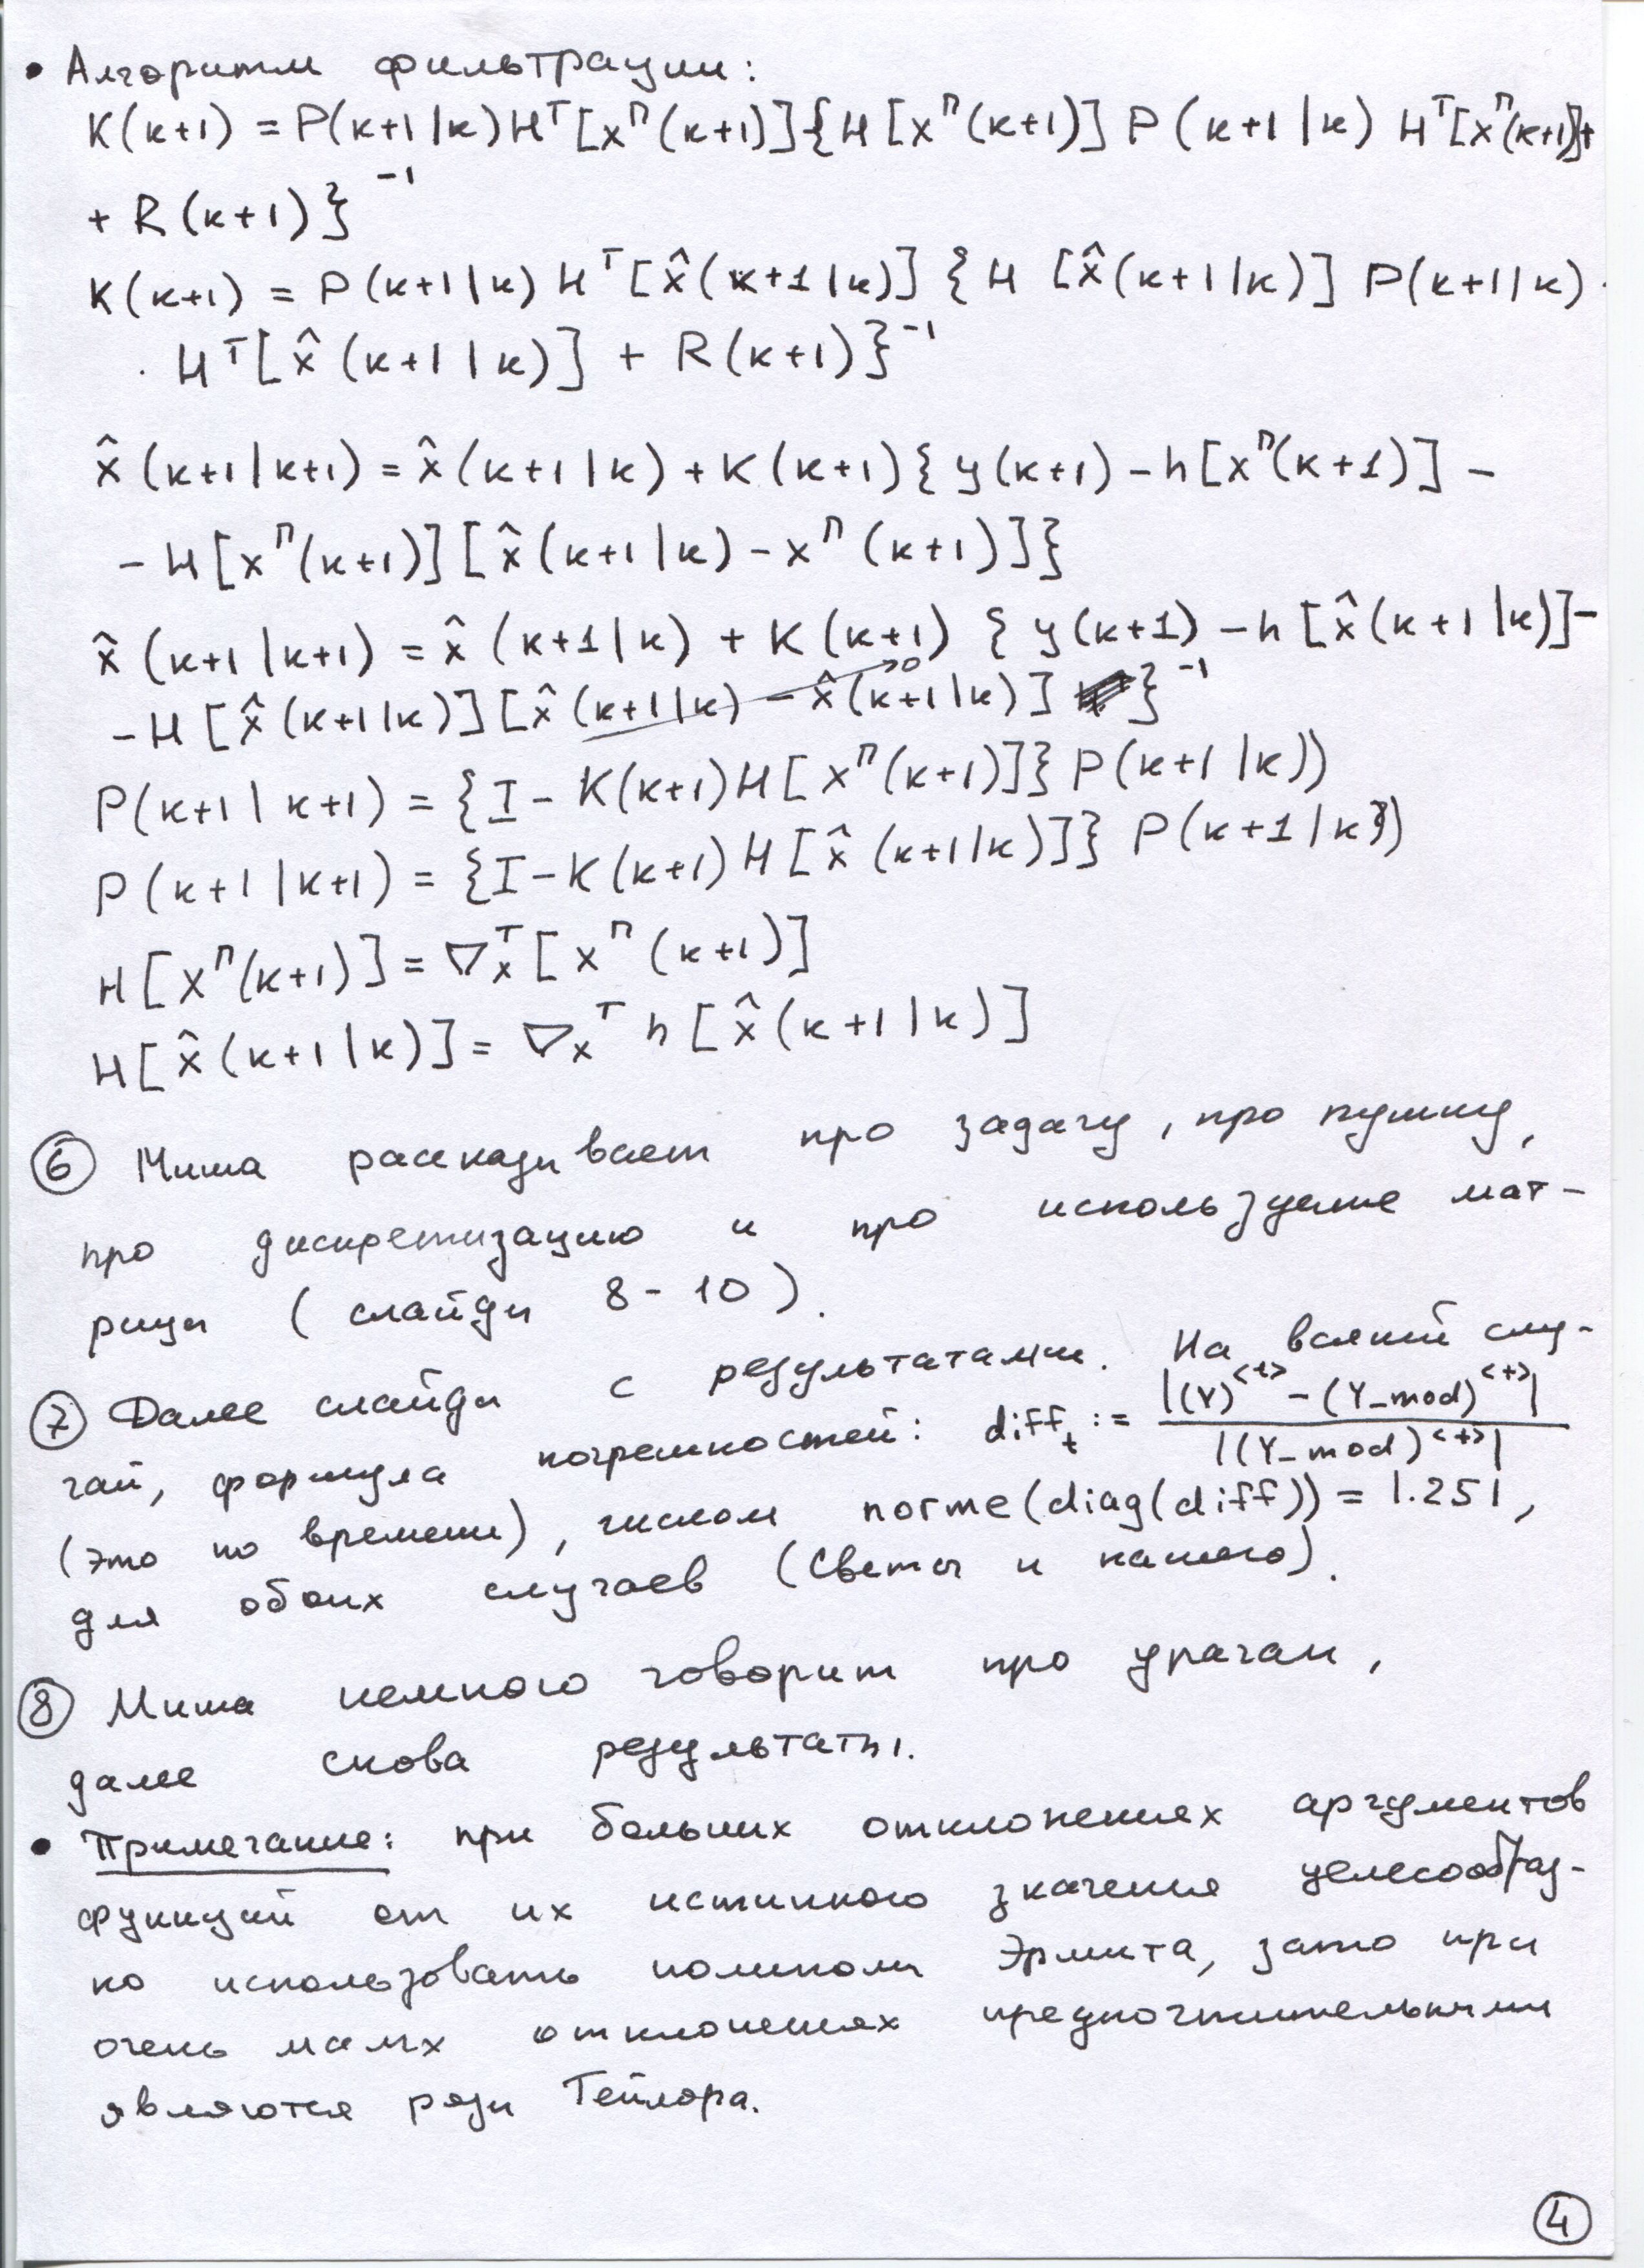 • Алгоритм фильтрации:
K(к+1) = P(к+1|к)Hᵀ[xᴨ(к+1)]{H[xᴨ(к+1)] P(к+1|к) Hᵀ[xᴨ(к+1)]+
+ R(к+1)}⁻¹
K(к+1) = P(к+1|к) Hᵀ[x̂(к+1|к)] {H [x̂(к+1|к)] P(к+1|к) ·
· Hᵀ[x̂(к+1|к)] + R(к+1)}⁻¹
x̂(к+1|к+1) = x̂(к+1|к) + K(к+1){y(к+1) – h[xᴨ(к+1)] –
– H[xᴨ(к+1)][x̂(к+1|к) – xᴨ(к+1)]}
x̂(к+1|к+1) = x̂(к+1|к) + K(к+1) {y(к+1) – h[x̂(к+1|к)] –
– H[x̂(к+1|к)][x̂(к+1|к) – x̂(к+1|к)] }⁻¹ → 0
P(к+1|к+1) = {I – K(к+1)H[xᴨ(к+1)]}P(к+1|к))
P(к+1|к+1) = {I – K(к+1)H[x̂(к+1|к)]} P(к+1|к))
H[xᴨ(к+1)] = ∇ₓᵀ[xᴨ(к+1)]
H[x̂(к+1|к)] = ∇ₓᵀ h[x̂(к+1|к)]
⑥ Миша рассказывает про задачу, про пушку,
про дискретизацию и про используемые мат-
рицы (слайды 8-10).
⑦ Далее слайды с результатами. На всякий слу-
чай, формула погрешностей: diffₜ := |(Y)^<t> – (Y_mod)^<t>| / |(Y_mod)^<t>|
(это по времени), числом norme(diag(diff)) = 1.251,
для обоих случаев (Светы и нашего).
⑧ Миша немного говорит про ураган,
далее снова результаты.
• Примечание: при больших отклонениях аргументов
функций от их истинного значения целесообраз-
но использовать полином Эрмита, зато при
очень малых отклонениях предпочтительными
являются ряды Тейлора.
④